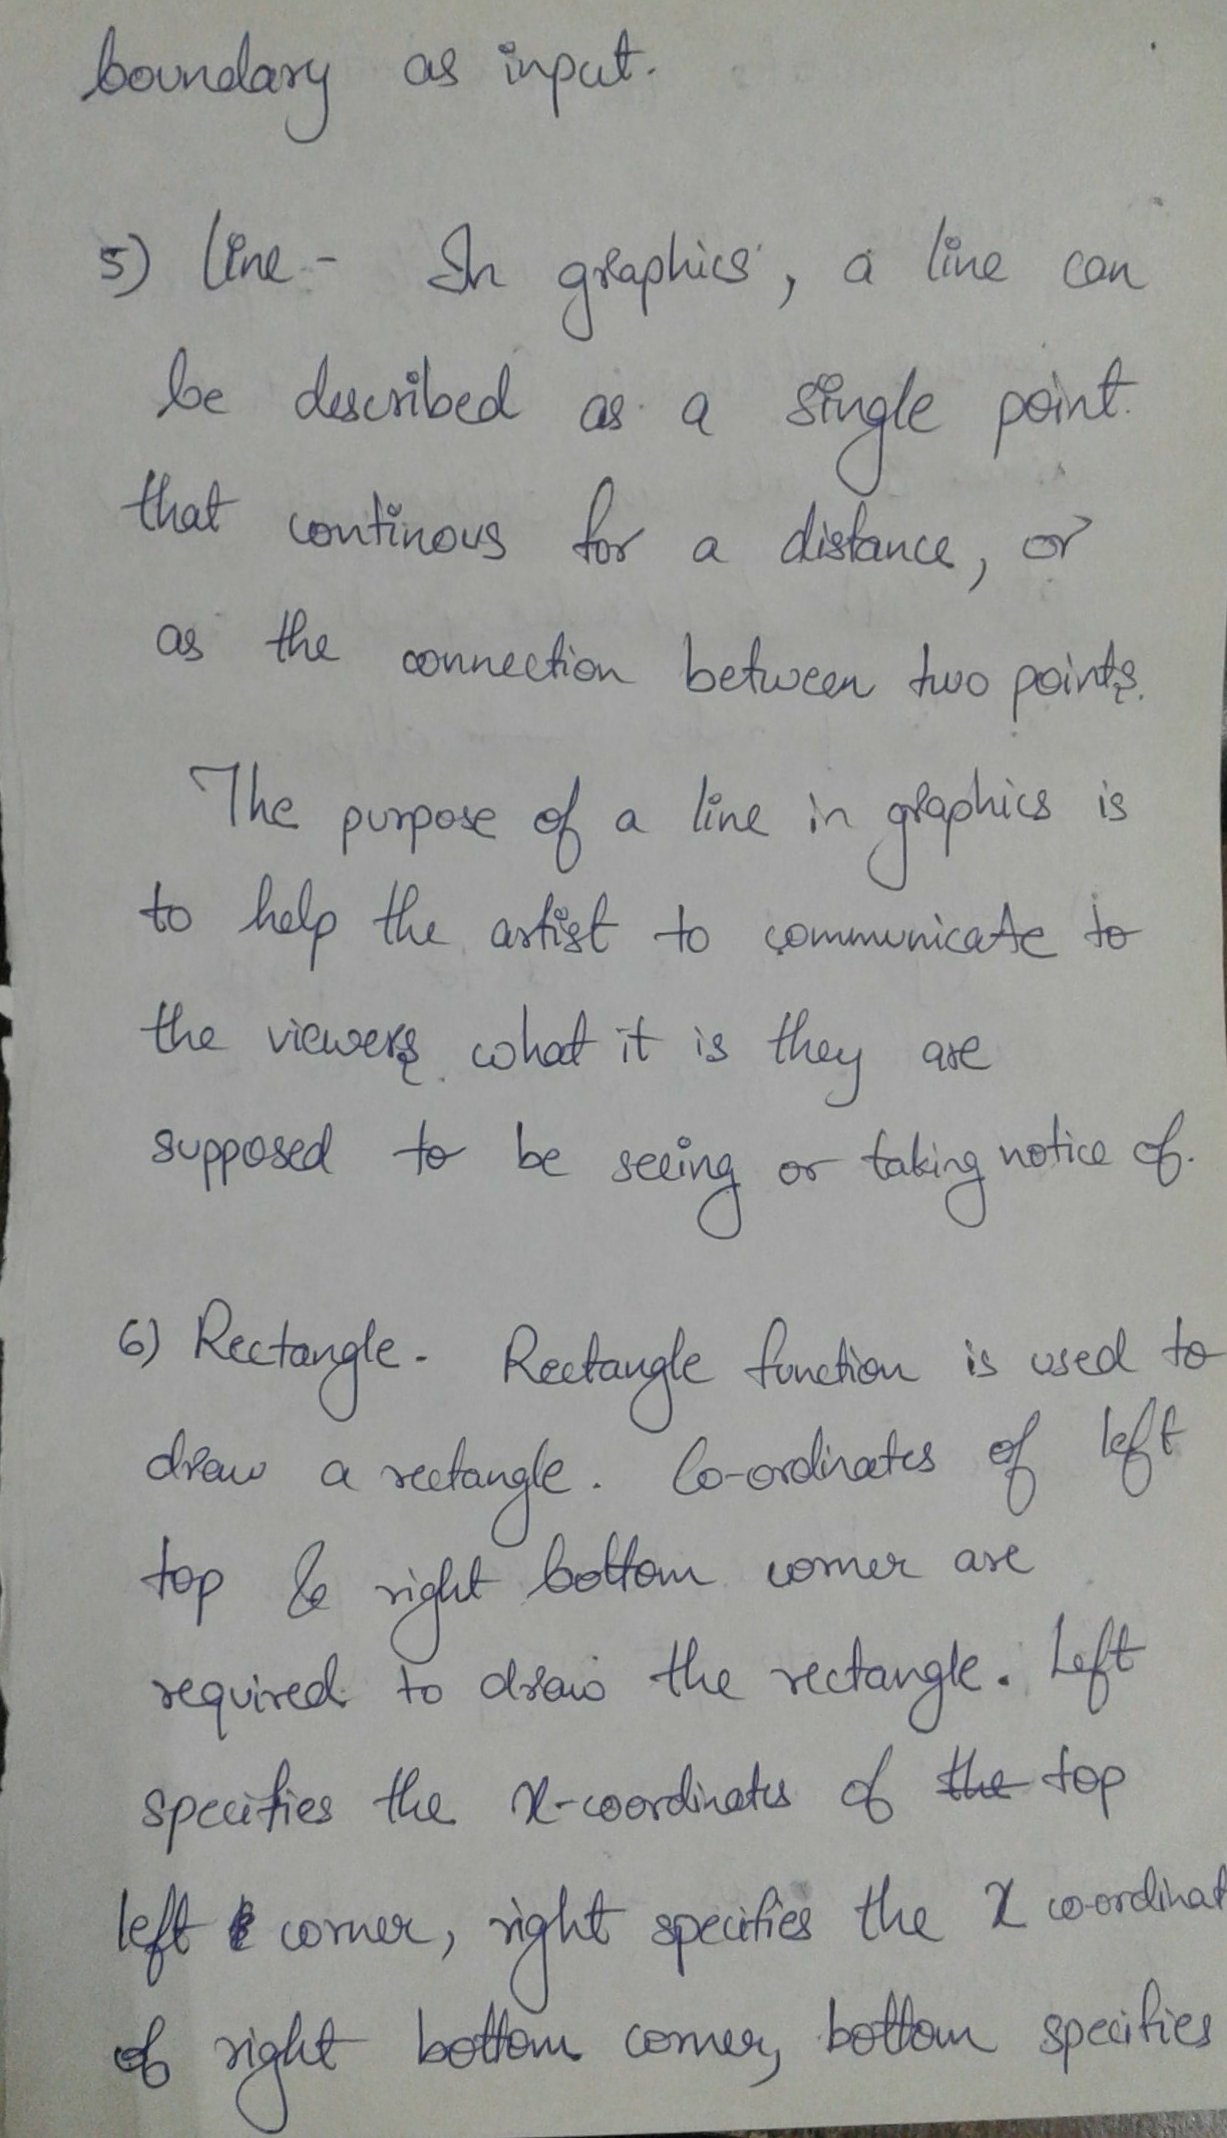 boundary as input.
5) Line - In graphics, a line can
be described as a single point
that continous for a distance, or
as the connection between two points.
The purpose of a line in graphics is
to help the artist to communicate to
the viewers what it is they are
supposed to be seeing or taking notice of.
6) Rectangle - Rectangle function is used to
draw a rectangle. Co-ordinates of left
top & right bottom corner are
required to draw the rectangle. Left
specifies the X-coordinates of the top
left corner, right specifies the X coordinat
of right bottom corner, bottom specifies